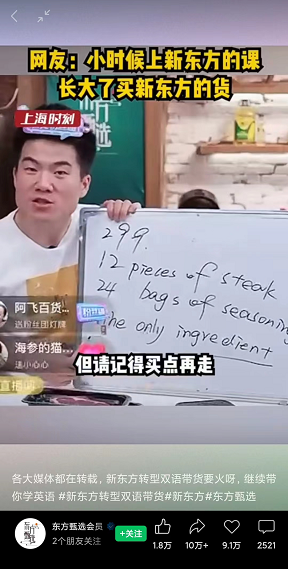 网友：小时候上新东方的课
长大了买新东方的货
上海时刻
299.
12 pieces of steak
24 bags of seasoning
the only ingredient
阿飞百货...
送粉丝团灯牌
海参的猫...
送小心心
直播间
但请记得买点再走
各大媒体都在转载，新东方转型双语带货要火呀，继续带
你学英语 #新东方转型双语带货#新东方#东方甄选
东方甄选会员
2个朋友关注
+关注
1.8万
10万+
9.1万
2521